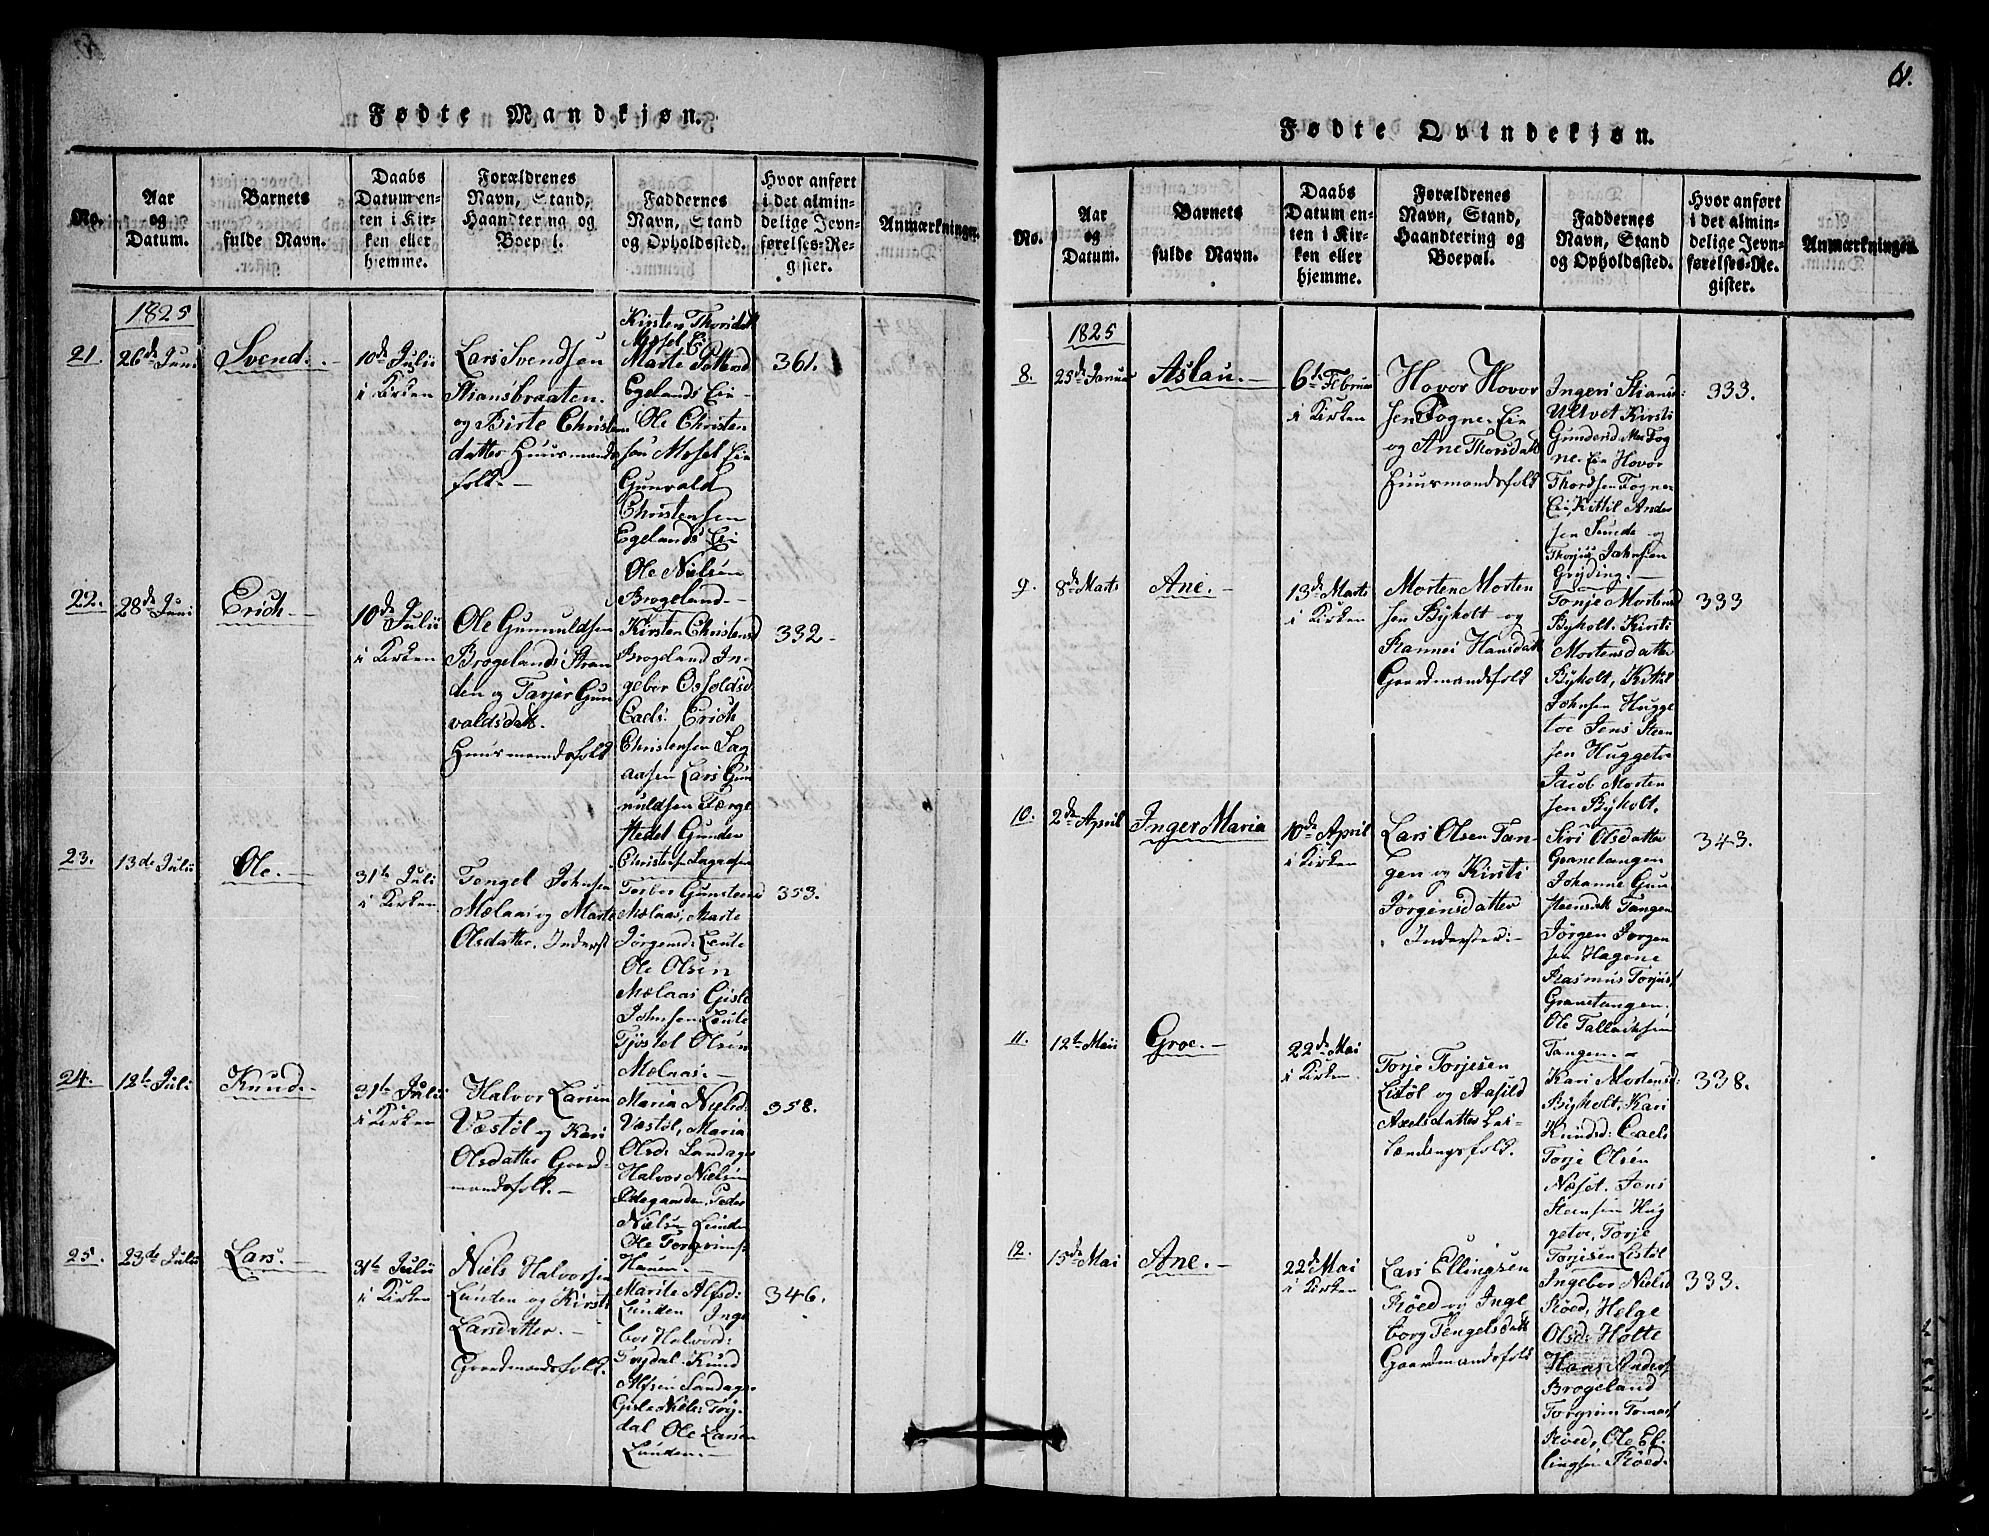 61.
Fødte Mandkjøn.
No.
Aar
og
Datum.
Barnets
fulde Navn.
Daabs
Datum en-
ten i Kir-
ken eller
hjemme.
Forældrenes
Navn, Stand,
Haandtering og
Boepæl.
Faddernes
Navn, Stand
og Opholdssted.
Hvor anført
i det almin-
delige Jevn-
førelses-Re-
gister.
Anmærkninger
1825
21.
26de Juni
Svend.
10de Julii
i Kirken
Lars Svendsen
Stiansbraaten
og Birte Christens
datter Huusmands
folk.
Kirsten Thorsdatt
Mosel Ei
Marte Pettersd
Egelands Eie
Ole Christen
sen Mosel Eie
Gunvald
Christensen
Egelands Eie
Ole Nielsen
Brogeland.
361.
22.
28de Juni
Erich
10de Julii
i Kirken
Ole Gunnuldsen
Brogelands Stran
den og Tarjer Gun
valdsdatt.
Huusmandsfolk
Kirsten Christensd
Brogeland In
gebor Osfoldsd
Eaels: Erich
Christensen Lag
aasen Lars Gun
nuldsen Færge
stedet Gunder
Christens Lagaasen
332
23.
13de Julii
Ole.
31te Juli
i Kirken
Tengel Johnsen
Mælaas og Marte
Olsdatter. Inderst
Torbor Gunsteensd
Mælaas, Marte
Jørgensd: Leute
Ole Olsen
Mælaas Gisle
Johnsen Leute
Tjøstel Olsen
Mælaas.
353.
24.
18te Juli
Knud.
31te Julii
i Kirken
Halvor Larsen
Væstøl og Kari
Olsdatter Gaard-
mandsfolk.
Maria Nielsd:
Væstøl, Maria
Olsd: Sandages
Halvor Nielsen
Ødegaarden, Peder
Nielsen Lunden
Ole Torgrims
Hanen.
358.
25.
23de Julii
Lars.
31te Julii
i Kirken
Niels Halvorsen
Lunden og Kirsti
Larsdatter.
Gaardmandsfolk.
Marite Alfsd:
Lunden Inge
bor Halvord:
Torjdal. Knud
Alfsen Sandages
Gisle Niels: Torj
dal Ole Larsen
Lunden.
346.
Fødte Qvindekjøn.
No.
Aar
og
Datum.
Barnets
fulde Navn.
Daabs
Datum en-
ten i Kir-
ken eller
hjemme.
Forældrenes
Navn, Stand,
Haandtering og
Boepæl.
Faddernes
Navn, Stand
og Opholdssted.
Hvor anført
i det almin-
delige Jevn-
førelses-Re-
gister.
Anmærkninger.
1825
8.
25de Januar
Aslau.
6te Februar
i Kirken
Hovor Hovor
sen Fogne. Eie
og Ane Thorsdatt
Huusmandsfolk
Ingeri Stiansd:
Ultvet Kirsti
Gundersd Moe Fog
ne. Eie Hovor
Thordsen Fogne
Eie, Kittil Ander
sen Sunde og
Thorjus Johnsen
Gryding.
333.
9.
8de Marts
Ane.
13de Marts
i Kirken
Morten Morten
sen Byholt og
Rannei Hansdatt
Gaardmandsfolk
Tonje Mortensd
Byholt. Kirsti
Mortensdatter
Byholt, Kittil
Johnsen Hugge
toe Jens Steen
sen Huggetoe
Jacob Morten
sen Byholt.
333
10.
2de April
Inger Maria
10de April
i Kirken
Lars Olsen Tan-
gen og Kirsti
Jørgensdatter
Inderster.
Siri Olsdatter
Granetangen
Johanne Gun
steensdt Tangen
Jørgen Jørgen
sen Hagene
Rasmus Torjus
Granetangen.
Ole Tallaksen
Tangen.
343.
11.
12te Maii
Groe.
22de Mai
i Kirken
Torje Torjesen
Listøl og Aasild
Axelsdatter Lei-
lændingsfolk.
Kari Mortensd:
Byholt, Kari
Knudsd: Eaels
Torje Olsen
Næset. Jens
Steensen Hug
getoe, Torje
Torjesen Listøl
338.
12.
15de Mai
Ane.
22de Mai
i Kirken
Lars Ellingsen
Røed og Inge
borg Tengelsdatt
Gaardmandsfolk
Ingebor Nielsd
Røed, Helge
Olsd: Holte
Hans Anders
Brogeland
Torgrim Tomas
Røed, Ole El-
lingsen Røed.
333.